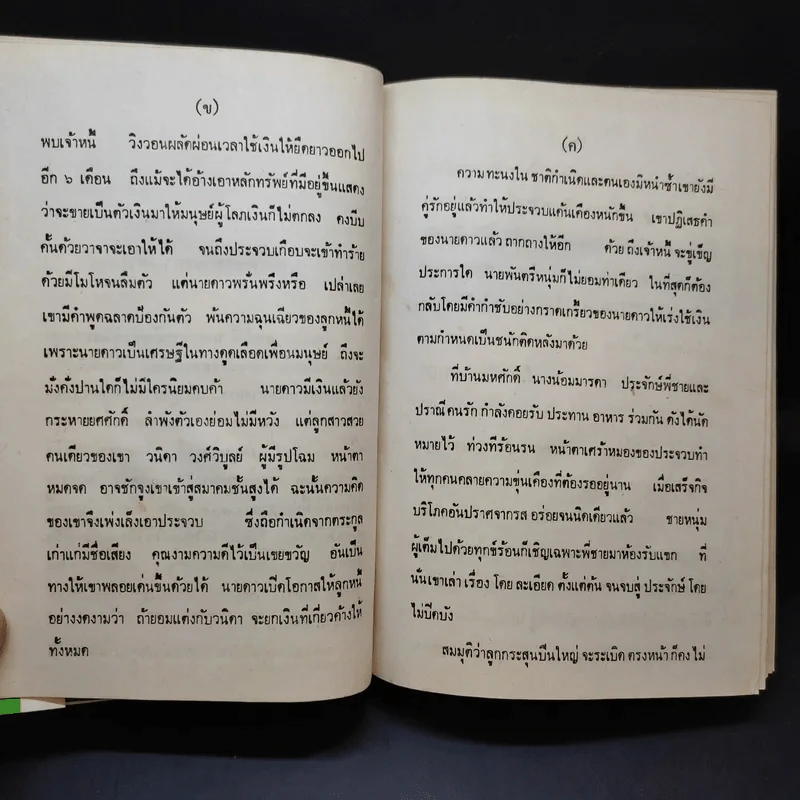 (ข)
พบเจ้าหนี้ วิงวอนผลัดผ่อนเวลาใช้เงินให้ยืดยาวออกไป
อีก ๖ เดือน ถึงแม้จะได้อ้างเอาหลักทรัพย์ที่มีอยู่ขึ้นแสดง
ว่าจะขายเป็นตัวเงินมาให้มนุษย์ผู้โลภเงินก็ไม่ตกลง คงบีบ
คั้นด้วยวาจาจะเอาให้ได้ จนถึงประจวบเกือบจะเข้าทำร้าย
ด้วยมีโมโหจนลืมตัว แต่นายดาวพรั่นพรึงหรือ เปล่าเลย
เขามีคำพูดฉลาดป้องกันตัว พ้นความฉุนเฉียวของลูกหนี้ได้
เพราะนายดาวเป็นเศรษฐีในทางดูดเลือดเพื่อนมนุษย์ ถึงจะ
มั่งคั่งปานใดก็ไม่มีใครนิยมคบค้า นายดาวมีเงินแล้วยัง
กระหายยศศักดิ์ ลำพังตัวเองย่อมไม่มีหวัง แต่ลูกสาวสวย
คนเดียวของเขา วนิดา วงศ์วิบูลย์ ผู้มีรูปโฉม หน้าตา
หมดจด อาจชักจูงเขาเข้าสู่สมาคมชั้นสูงได้ ฉะนั้นความคิด
ของเขาจึงเพ่งเล็งเอาประจวบ ซึ่งถือกำเนิดจากตระกูล
เก่าแก่มีชื่อเสียง คุณงามความดีไว้เป็นเขยขวัญ อันเป็น
ทางให้เขาพลอยเด่นขึ้นด้วยได้ นายดาวเปิดโอกาสให้ลูกหนี้
อย่างงดงามว่า ถ้ายอมแต่งกับวนิดา จะยกเงินที่เกี่ยวค้างให้
ทั้งหมด
(ค)
ความทะนงใน ชาติกำเนิดและตนเองมิหนำซ้ำเขายังมี
คู่รักอยู่แล้วทำให้ประจวบแค้นเคืองหนักขึ้น เขาปฏิเสธคำ
ของนายดาวแล้ว ถากถางให้อีก ด้วย ถึงเจ้าหนี้ จะขู่เข็ญ
ประการใด นายพันตรีหนุ่มก็ไม่ยอมท่าเดียว ในที่สุดก็ต้อง
กลับโดยมีคำกำชับอย่างกราดเกรี้ยวของนายดาวให้เร่งใช้เงิน
ตามกำหนดเป็นชนักติดหลังมาด้วย
ที่บ้านมหศักดิ์ นางน้อมมารดา ประจักษ์พี่ชายและ
ปราณีคนรัก กำลังคอยรับ ประทาน อาหาร ร่วมกัน ดังได้นัด
หมายไว้ ท่วงทีร้อนรน หน้าตาเศร้าหมองของประจวบทำ
ให้ทุกคนคลายความขุ่นเคืองที่ต้องรออยู่นาน เมื่อเสร็จกิจ
บริโภคอันปราศจากรส อร่อยจนนิดเดียวแล้ว ชายหนุ่ม
ผู้เต็มไปด้วยทุกข์ร้อนก็เชิญเฉพาะพี่ชายมาห้องรับแขก ที่
นั่นเขาเล่า เรื่อง โดย ละเอียด ตั้งแต่ต้น จนจบสู่ ประจักษ์ โดย
ไม่ปิดบัง
สมมุติว่าลูกกระสุนปืนใหญ่ จะระเบิด ตรงหน้า ก็คง ไม่